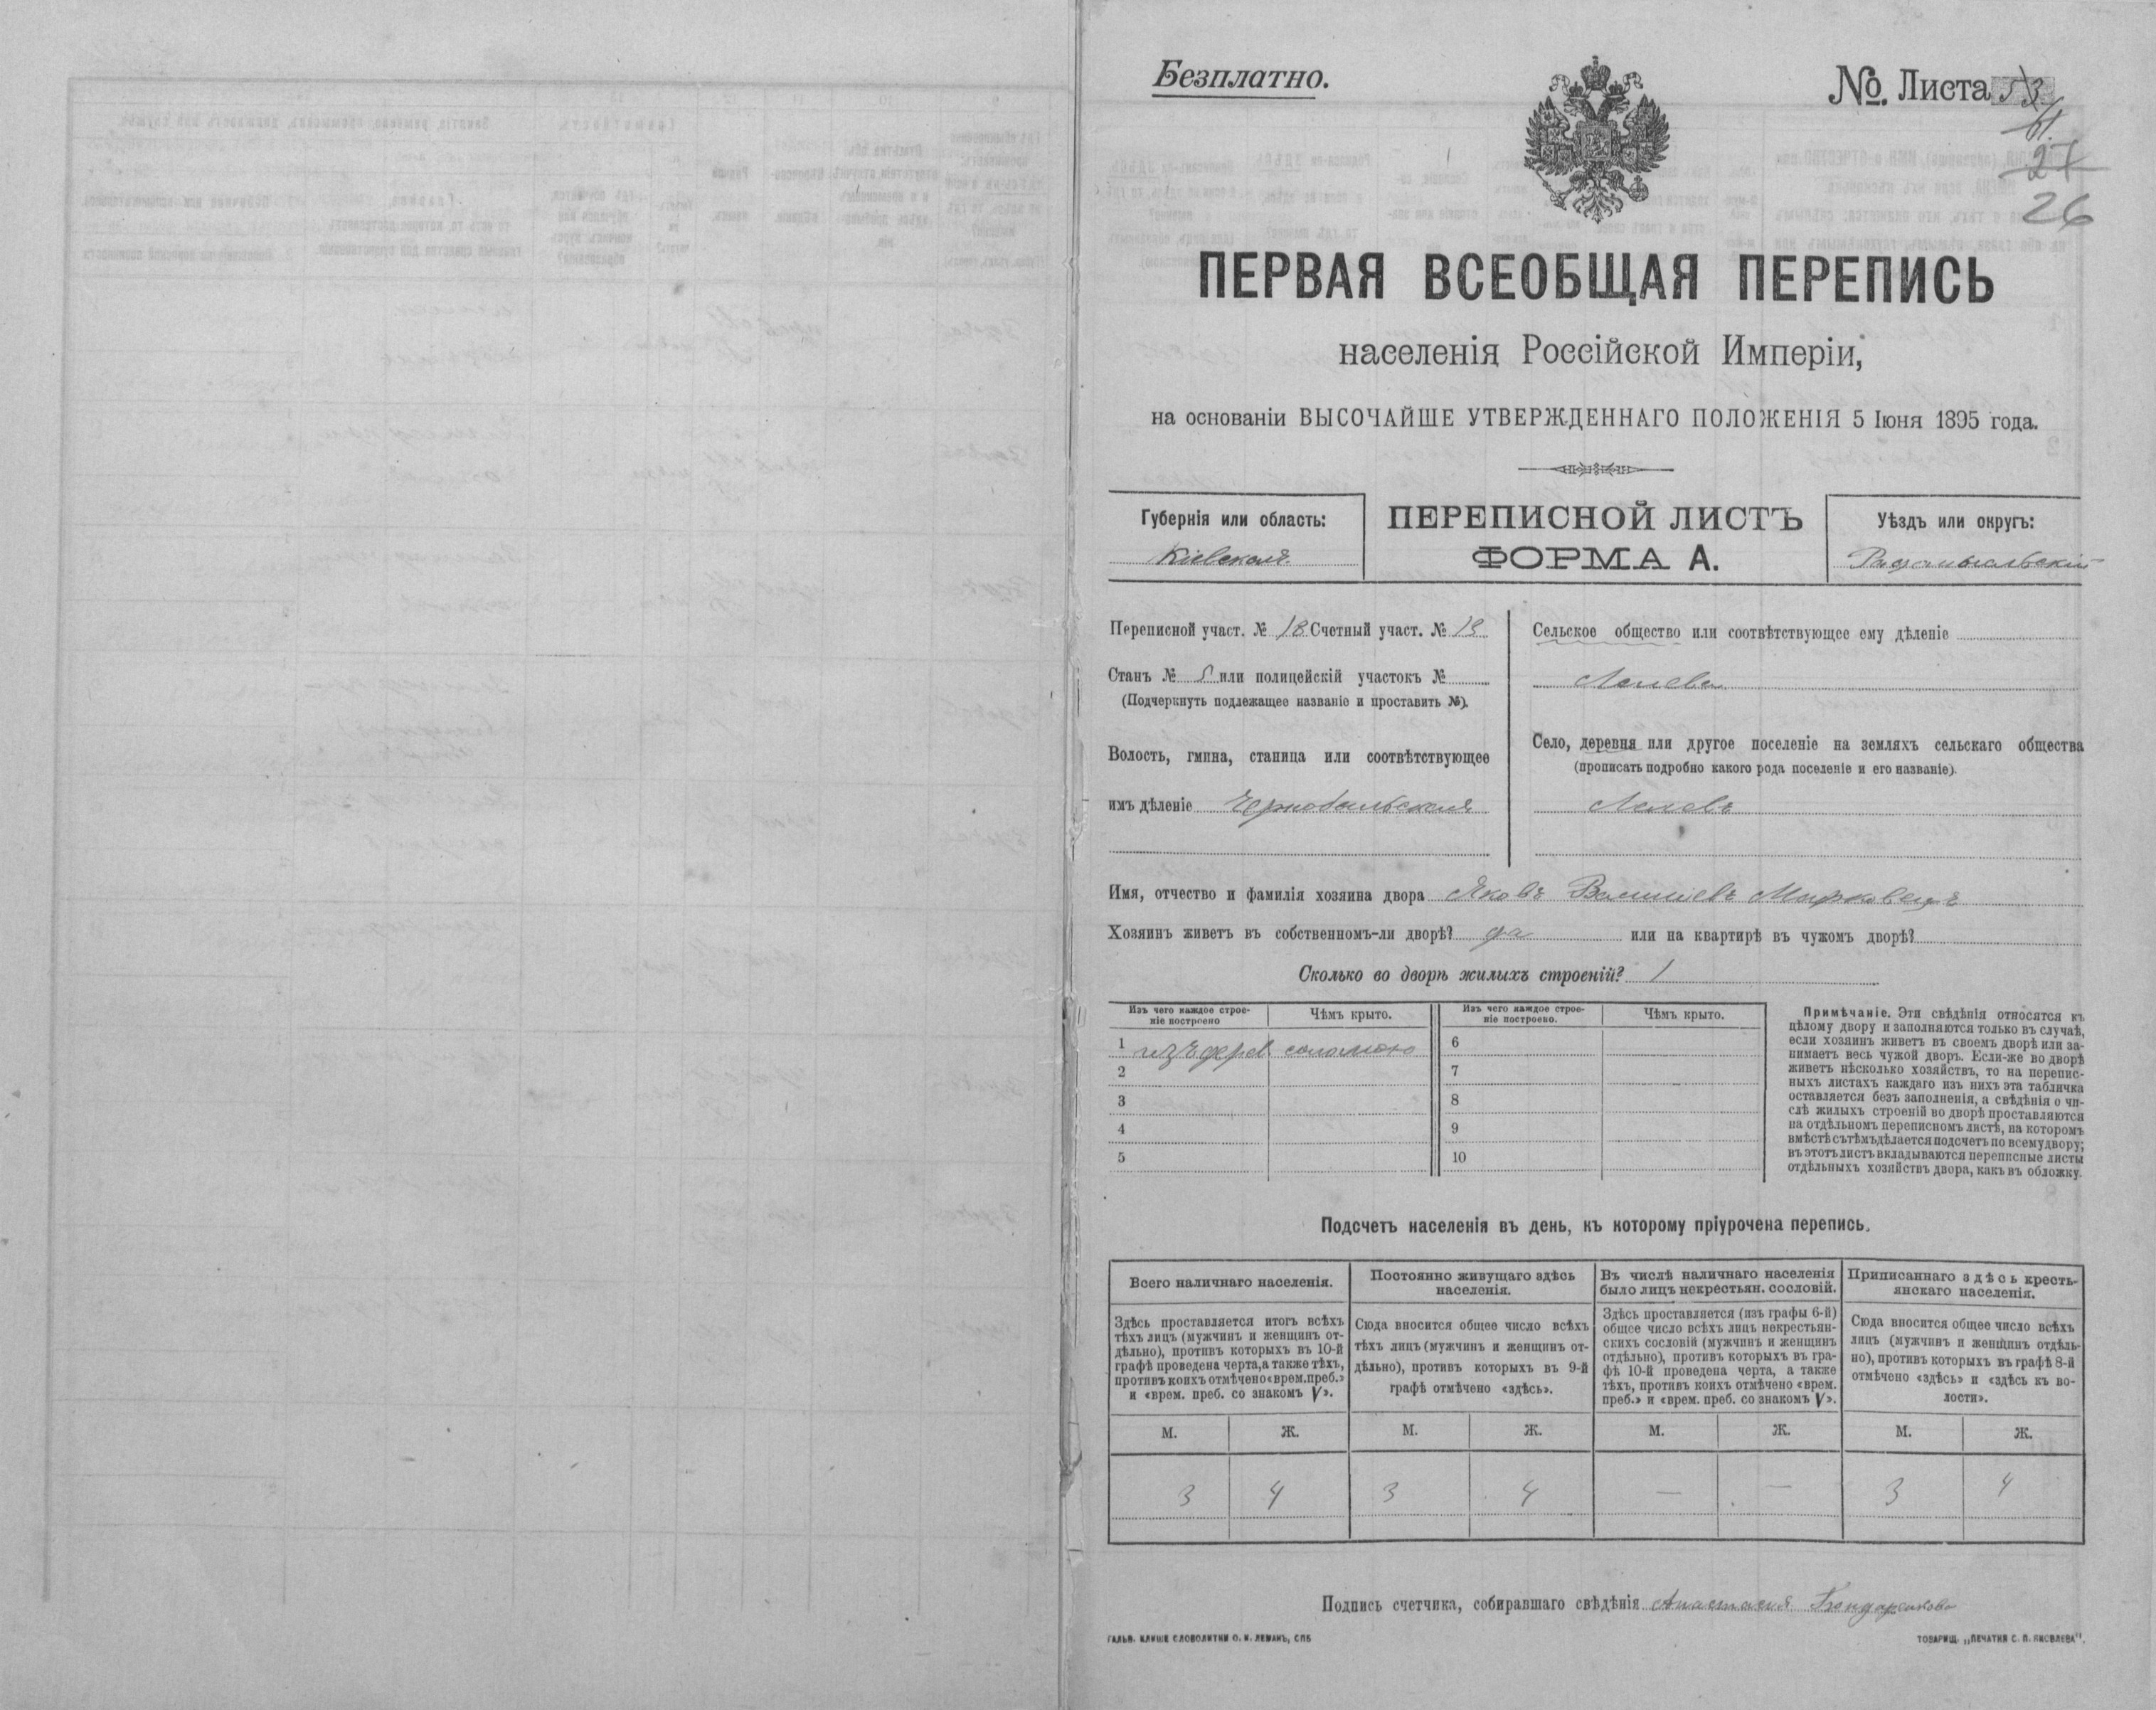 Безплатно.
№. Листа 53
61.
27
26
ПЕРВАЯ ВСЕОБЩАЯ ПЕРЕПИСЬ
населенія Россійской Имперіи,
на основаніи ВЫСОЧАЙШЕ УТВЕРЖДЕННАГО ПОЛОЖЕНІЯ 5 Іюня 1895 года.
Губернія или область:
Кіевская
ПЕРЕПИСНОЙ ЛИСТЪ
ФОРМА А.
Уѣздъ или округъ:
Радомысльскій
Переписной участ. № 18 Счетный участ. № 19
Станъ № 5 или полицейскій участокъ №
(Подчеркнуть подлежащее названіе и проставить №).
Волость, гмина, станица или соотвѣтствующее
имъ дѣленіе Чернобыльская
Сельское общество или соотвѣтствующее ему дѣленіе
Село, деревня или другое поселеніе на земляхъ сельскаго общества
(прописать подробно какого рода поселеніе и его названіе).
Лелевъ
Имя, отчество и фамилія хозяина двора Яковъ Василіевъ Марковецъ
Хозяинъ живетъ въ собственномъ-ли дворѣ? да или на квартирѣ въ чужомъ дворѣ?
Сколько во дворѣ жилыхъ строеній? 1
Изъ чего каждое строе-
ніе построено
Чѣмъ крыто.
Изъ чего каждое строе-
ніе построено.
Чѣмъ крыто.
1 изъ дерев. соломою
2
3
4
5
6
7
8
9
10
Примѣчаніе. Эти свѣдѣнія относятся къ
цѣлому двору и заполняются только въ случаѣ,
если хозяинъ живетъ въ своемъ дворѣ или за-
нимаетъ весь чужой дворъ. Если-же во дворѣ
живетъ нѣсколько хозяйствъ, то на перепис-
ныхъ листахъ каждаго изъ нихъ эта табличка
оставляется безъ заполненія, а свѣдѣнія о чи-
слѣ жилыхъ строеній во дворѣ проставляются
на отдѣльномъ переписномъ листѣ, на которомъ
вмѣстѣ съ тѣмъ дѣлается подсчетъ по всему двору;
въ этотъ листъ вкладываются переписные листы
отдѣльныхъ хозяйствъ двора, какъ въ обложку.
Подсчетъ населенія въ день, къ которому пріурочена перепись.
Всего наличнаго населенія.
Здѣсь проставляется итогъ всѣхъ
тѣхъ лицъ (мужчинъ и женщинъ от-
дѣльно), противъ которыхъ въ 10-й
графѣ проведена черта, а также тѣхъ,
противъ коихъ отмѣчено «врем. преб.»
и «врем. преб. со знакомъ V».
Постоянно живущаго здѣсь
населенія.
Сюда вносится общее число всѣхъ
тѣхъ лицъ (мужчинъ и женщинъ от-
дѣльно), противъ которыхъ въ 9-й
графѣ отмѣчено «здѣсь».
Въ числѣ наличнаго населенія
было лицъ некрестьян. сословій.
Здѣсь проставляется (изъ графы 6-й)
общее число всѣхъ лицъ некрестьян-
скихъ сословій (мужчинъ и женщинъ
отдѣльно), противъ которыхъ въ гра-
фѣ 10-й проведена черта, а также
тѣхъ, противъ коихъ отмѣчено «врем.
преб.» и «врем. преб. со знакомъ V».
Приписаннаго здѣсь кресть-
янскаго населенія.
Сюда вносится общее число всѣхъ
лицъ (мужчинъ и женщинъ отдѣль-
но), противъ которыхъ въ графѣ 8-й
отмѣчено «здѣсь» и «здѣсь къ во-
лости».
М. Ж. М. Ж. М. Ж. М. Ж.
3 4 3 4 — — 3 4
Подпись счетчика, собиравшаго свѣдѣнія Анастасія Бондаренкова
ГАЛЬВ. КЛИШЕ СЛОВОЛИТНИ О. И. ЛЕМАНЪ, СПБ
ТОВАРИЩ. „ПЕЧАТНЯ С. П. ЯКОВЛЕВА".